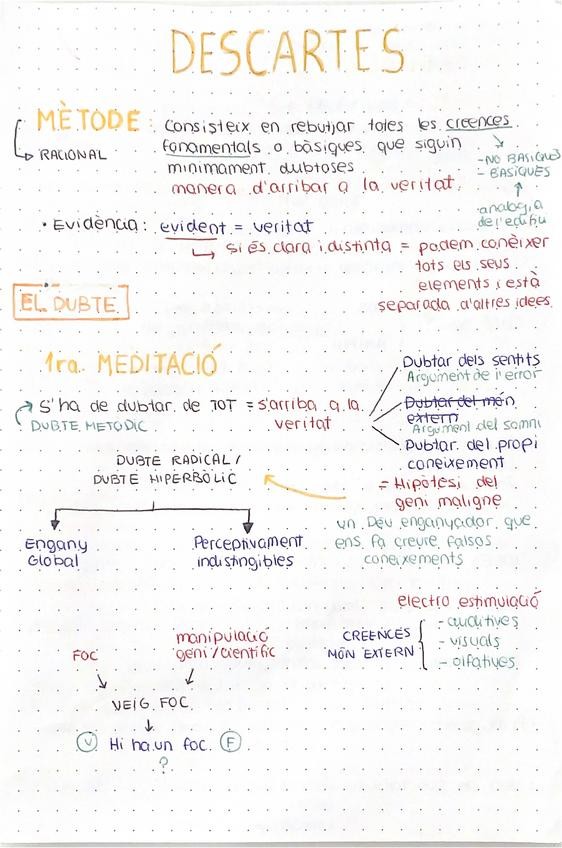 DESCARTES
MÈTODE: Consisteix en rebutjar totes les creences
RACIONAL
fonamentals o bàsiques que siguin
minimament dubtoses
- NO BÀSIQUES
- BÀSIQUES
manera d'arribar a la veritat.
analogia
de l'edifici
• Evidència: evident = veritat
si és clara i distinta = podem conèixer
tots els seus
elements i està
separada d'altres idees.
EL DUBTE
1ra. MEDITACIÓ
S'ha de dubtar de TOT = s'arriba a la
veritat
DUBTE METÒDIC
Dubtar dels sentits
Argument de l'error
Dubtar del món
extern
Argument del somni
Dubtar del propi
coneixement
= Hipòtesi del
geni maligne
un Déu enganyador que
ens fa creure falsos
coneixements
DUBTE RADICAL /
DUBTE HIPERBÒLIC
Engany
Global
Perceptivament
indistingibles
electro estimulació
CREENCES
MÓN EXTERN
- auditives
- visuals
- olfatives
FOC
manipulació
geni / científic
VEIG FOC
V Hi ha un foc F
?